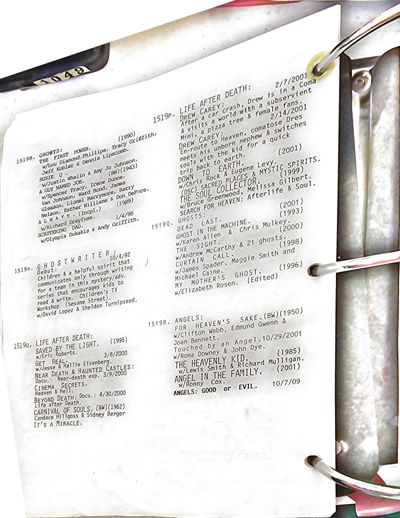 1048
1519M. GHOSTS:
THE FIRST POWER. (1990)
w/Lou Diamond Phillips, Tracy Griffith,
Jeff Kober & Dennis Lipscomb.
SUSIE Q.
w/Justin Whalin & Amy Jo Johnson.
A GUY NAMED JOE. (BW)(1943)
w/Spencer Tracy, Irene Dunne,
Van Johnson, Ward Bond, James
Gleason, Lionel Barrymore, Don DeFore,
Nelson, Esther Williams & Don
ALWAYS. (Incpl.) (1989)
w/Richard Dreyfuss.
SCATTERING DAD. 1/4/98
w/Olympia Dukakis & Andy Griffith.
1519N. GHOSTWRITER:
Debut. 10/4/92
Children & a helpful spirit that
communicates only through writing
for a team in this mystery/adv.
series that encourages kids to
read & write. Children's TV
Workshop (Sesame Street).
w/David Lopez & Sheldon Turnipseed.
1519O. LIFE AFTER DEATH:
SAVED BY THE LIGHT. (1995)
w/Eric Roberts.
GET REAL. 3/8/2000
w/Jesse & Hallie Eisenberg.
NEAR DEATH & HAUNTED CASTLES:
Docu.: Near-death exp. 3/9/2000
CINEMA SECRETS.
Heaven & Hell.
BEYOND DEATH: Docu.: 4/30/2000
Life after Death.
CARNIVAL OF SOULS. (BW)(1962)
Candace Hillgoss & Sidney Berger
IT'S A MIRACLE.
1519P. LIFE AFTER DEATH:
DREW CAREY: 2/7/2001
After a car crash, Drew is in a Coma
& visits a world with a subservient
Mimi, a pizza tree & female fans.
DREW CAREY: 2/14/2001
En-route to Heaven, comatose Dres
meets his unborn nephew & switches
souls with the kid for a quick
trip back to earth.
DOWN TO EARTH. (2001)
w/Chris Rock & Eugene Levy.
(DSC) SACRED PLACES & MYSTIC SPIRITS.
THE SOUL COLLECTOR. (1999)
w/Bruce Greenwood, Melissa Gilbert.
SEARCH FOR HEAVEN: Afterlife & Soul.
1519Q. GHOSTS:
DEAD LAST. (2001)
GHOST IN THE MACHINE. (1993)
w/Karen Allen & Chris Mulkey.
THE SIGHT. (2001)
w/Andrew McCarthy & 21 ghosts.
CURTAIN CALL. (1998)
w/James Spader, Maggie Smith and
Michael Caine.
MY MOTHER'S GHOST. (1996)
w/Elizabeth Rosen. (Edited)
1519R. ANGELS:
FOR HEAVEN'S SAKE.(BW)(1950)
w/Clifton Webb, Edmund Gwenn &
Joan Bennett.
Touched by an Angel.10/29/2001
w/Roma Downey & John Dye.
THE HEAVENLY KID. (1985)
w/Lewis Smith & Richard Mulligan.
ANGEL IN THE FAMILY. (2001)
w/Ronny Cox.
ANGELS: GOOD or EVIL. 10/7/09